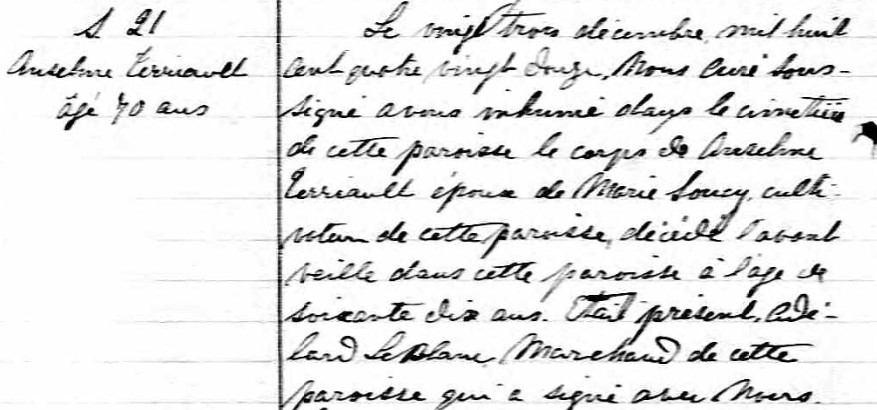 S 21
Anselme Terriault
âgé 70 ans
Le vingt trois décembre, mil huit
cent quatre vingt douze, Nous curé sous-
signé avons inhumé dans le cimetière
de cette paroisse le corps de Anselme
Terriault époux de Marie Soucy, culti-
vateur de cette paroisse, décédé l'avant
veille dans cette paroisse à l'age de
soixante dix ans. Etait présent, Adé-
lard LeBlanc, Marchand de cette
paroisse qui a signé avec Nous.